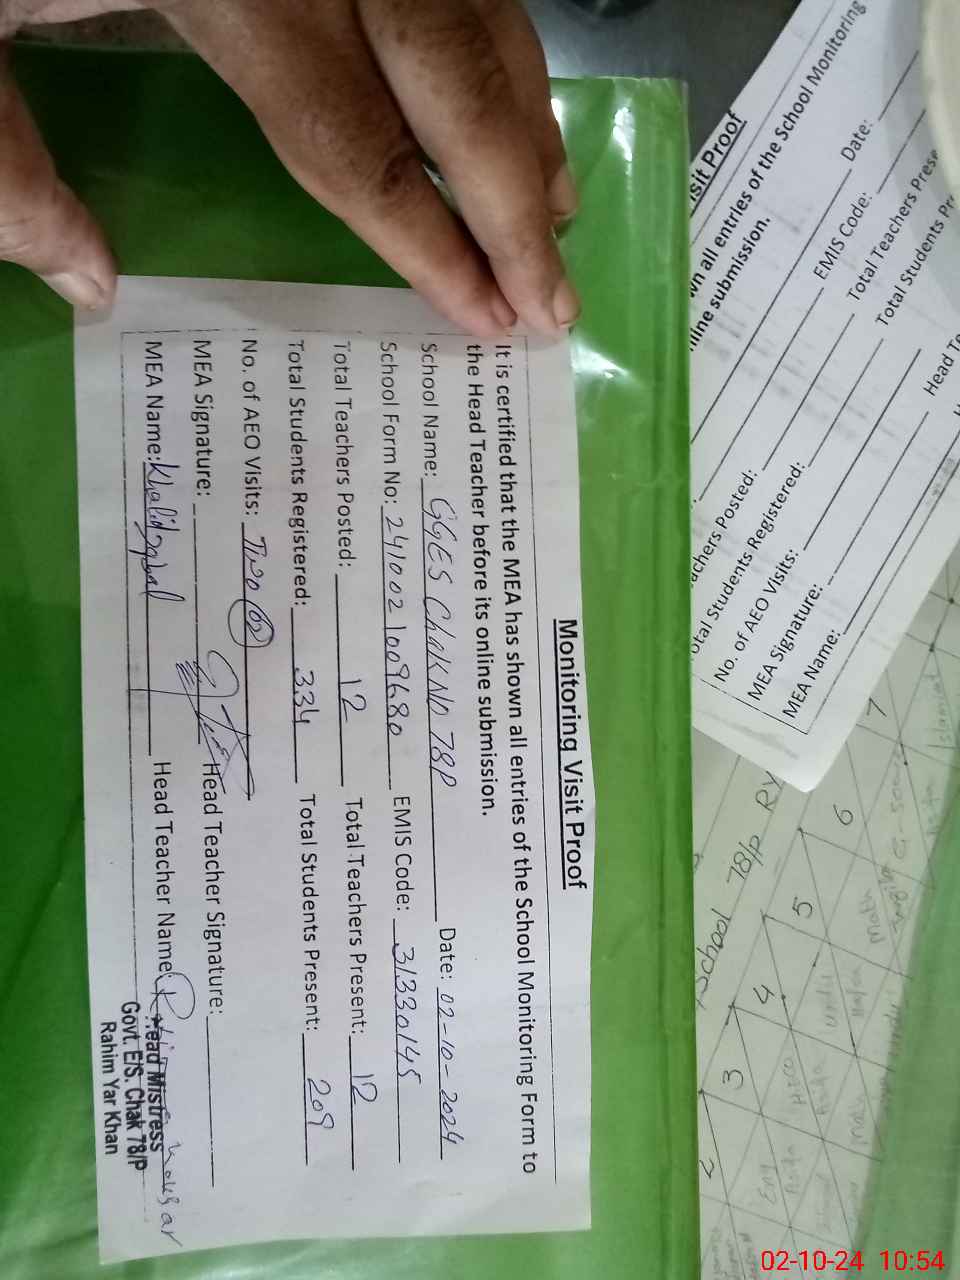 Monitoring Visit Proof
It is certified that the MEA has shown all entries of the School Monitoring Form to
the Head Teacher before its online submission.
School Name: GGES Chak NO 78P Date: 02-10-2024
School Form No: 2410021009680 EMIS Code: 31330145
Total Teachers Posted: 12 Total Teachers Present: 12
Total Students Registered: 334 Total Students Present: 209
No. of AEO Visits: Two 02
MEA Signature: Head Teacher Signature:
MEA Name: Khalid Iqbal Head Teacher Name:
Head Mistress
Govt. E/S. Chak 78/P
Rahim Yar Khan
isit Proof
wn all entries of the School Monitoring
nline submission.
Date:
EMIS Code:
achers Posted: Total Teachers Prese
otal Students Registered: Total Students Pr
No. of AEO Visits:
MEA Signature: Head Te
MEA Name:
School 78/P
2 3 4 5 6 7
Eng
Math
Urdu
02-10-24 10:54